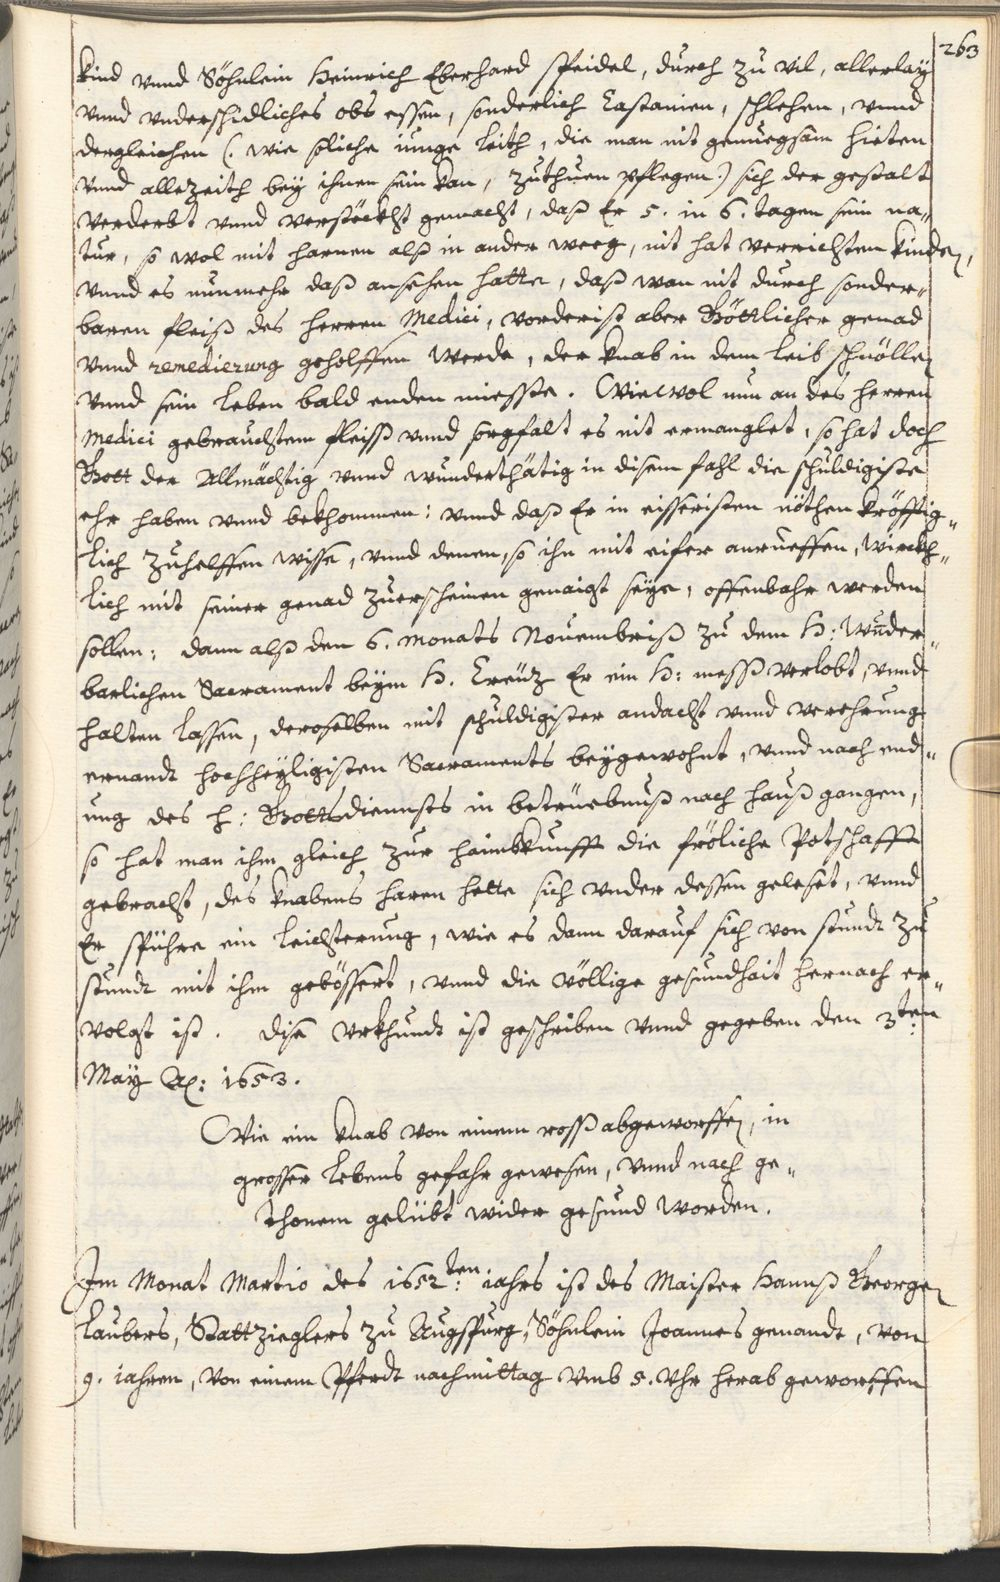 263
kind vnnd Söhnlein Heinrich Eberhard Speidel, durch zu vil, allerlaÿ
vnnd vnderschidliches obs essen, sonderlich Castanien, schlehen, vnnd
dergleichen (. wie soliche iunge leith, die man nit genuegsam hieten
vnnd allezeith beÿ ihnen sein kan, zuthuen pflegen.) sich der gestalt
verderbt vnnd verstöckht gemacht, daß Er 5. in 6. tagen sein na„
tur, so wol mit harnen alß in ander weeg, nit hat verrichten kinden,
vnnd es nunmehr daß ansehen hatte, daß wan nit durch sonder„
baren fleiß des herren Medici, vorderist aber Göttlicher genad
vnnd remedierung geholffen werde, der knab in dem leib schnöllen
vnnd sein leben bald enden miesste. Wiewol nun an des herren
Medici gebrauchtem fleiss vnnd sorgfalt es nit ermanglet, so hat doch
Gott der Allmächtig vnnd wunderthätig in disem fahl die schuldigiste
ehr haben vnnd bekhommen: vnnd daß Er in eisseristen nöthen kröfftig„
lich zuhelffen wisse, vnnd denen, so ihn mit eifer anrueffen, wirckh„
lich mit seiner genad zuerscheinen genaigt seÿe, offenbahr werden
sollen: dann alß den 6. monats Nouembriß zu dem H: Wunder„
barlichen Sacrament beÿm H. Creütz Er ein H: mess verlobt, vnnd
halten lassen, deroselben mit schuldigister andacht vnnd verehrung
ernandt hochheÿligisten Sacraments beÿgewohnt, vnnd nach end„
ung des h: Gottsdiennsts in betrüebnuß nach hauß gangen,
so hat man ihm gleich zur haimbkunfft die fröliche Potschafft
gebracht, des knabens haren hette sich vnder dessen geleset, vnnd
Er spühre ein leichterung, wie es dann darauf sich von stundt zu
stundt mit ihm gebössert, vnnd die völlige gesundhait hernach er„
volgt ist. Dise vrkhundt ist geschriben vnnd gegeben den 3ten
Maÿ Aº: 1653.
Wie ein knab von einem ross abgeworffen, in
grosser lebens gefahr gewesen, vnnd nach ge„
thonem gelübt wider gesund worden.
Im Monat Martio des 1652ten: iahrs ist des Maister Hannß Georgen
Laubers, Stattzieglers zu Augspurg, Söhnlein Joannes genandt, von
9. iahren, von einem Pferdt nachmittag vmb 5. Vhr herab geworffen